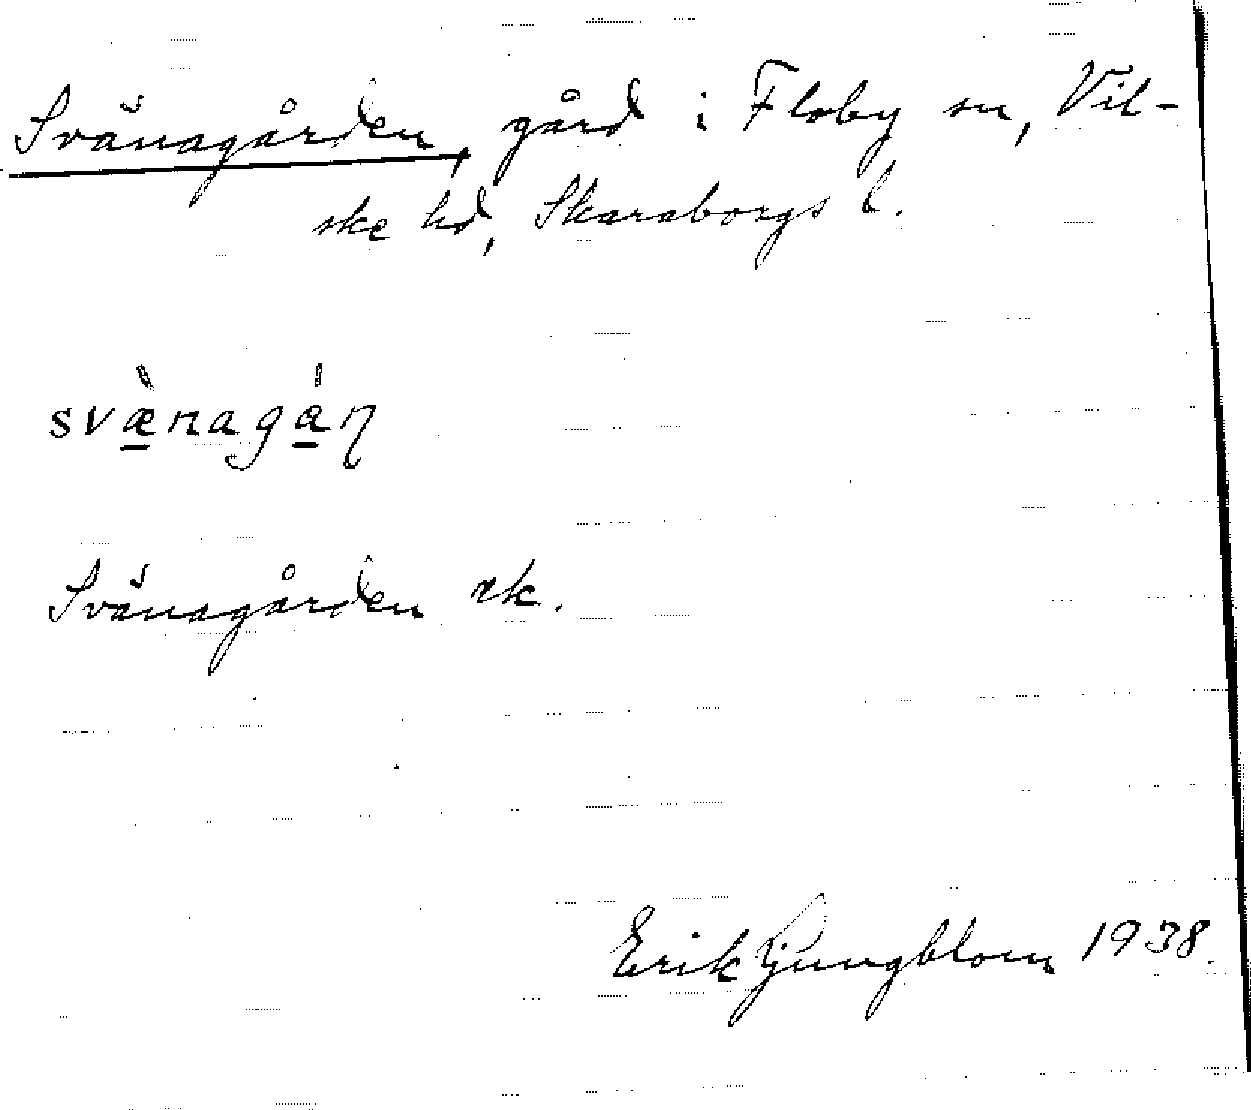 Svänagården, gård i Floby sn, Vil-
ske hd, Skaraborgs l.
svæ̀nagáꞃ
Svänagården rk.
Erik Ljungblom 1938.